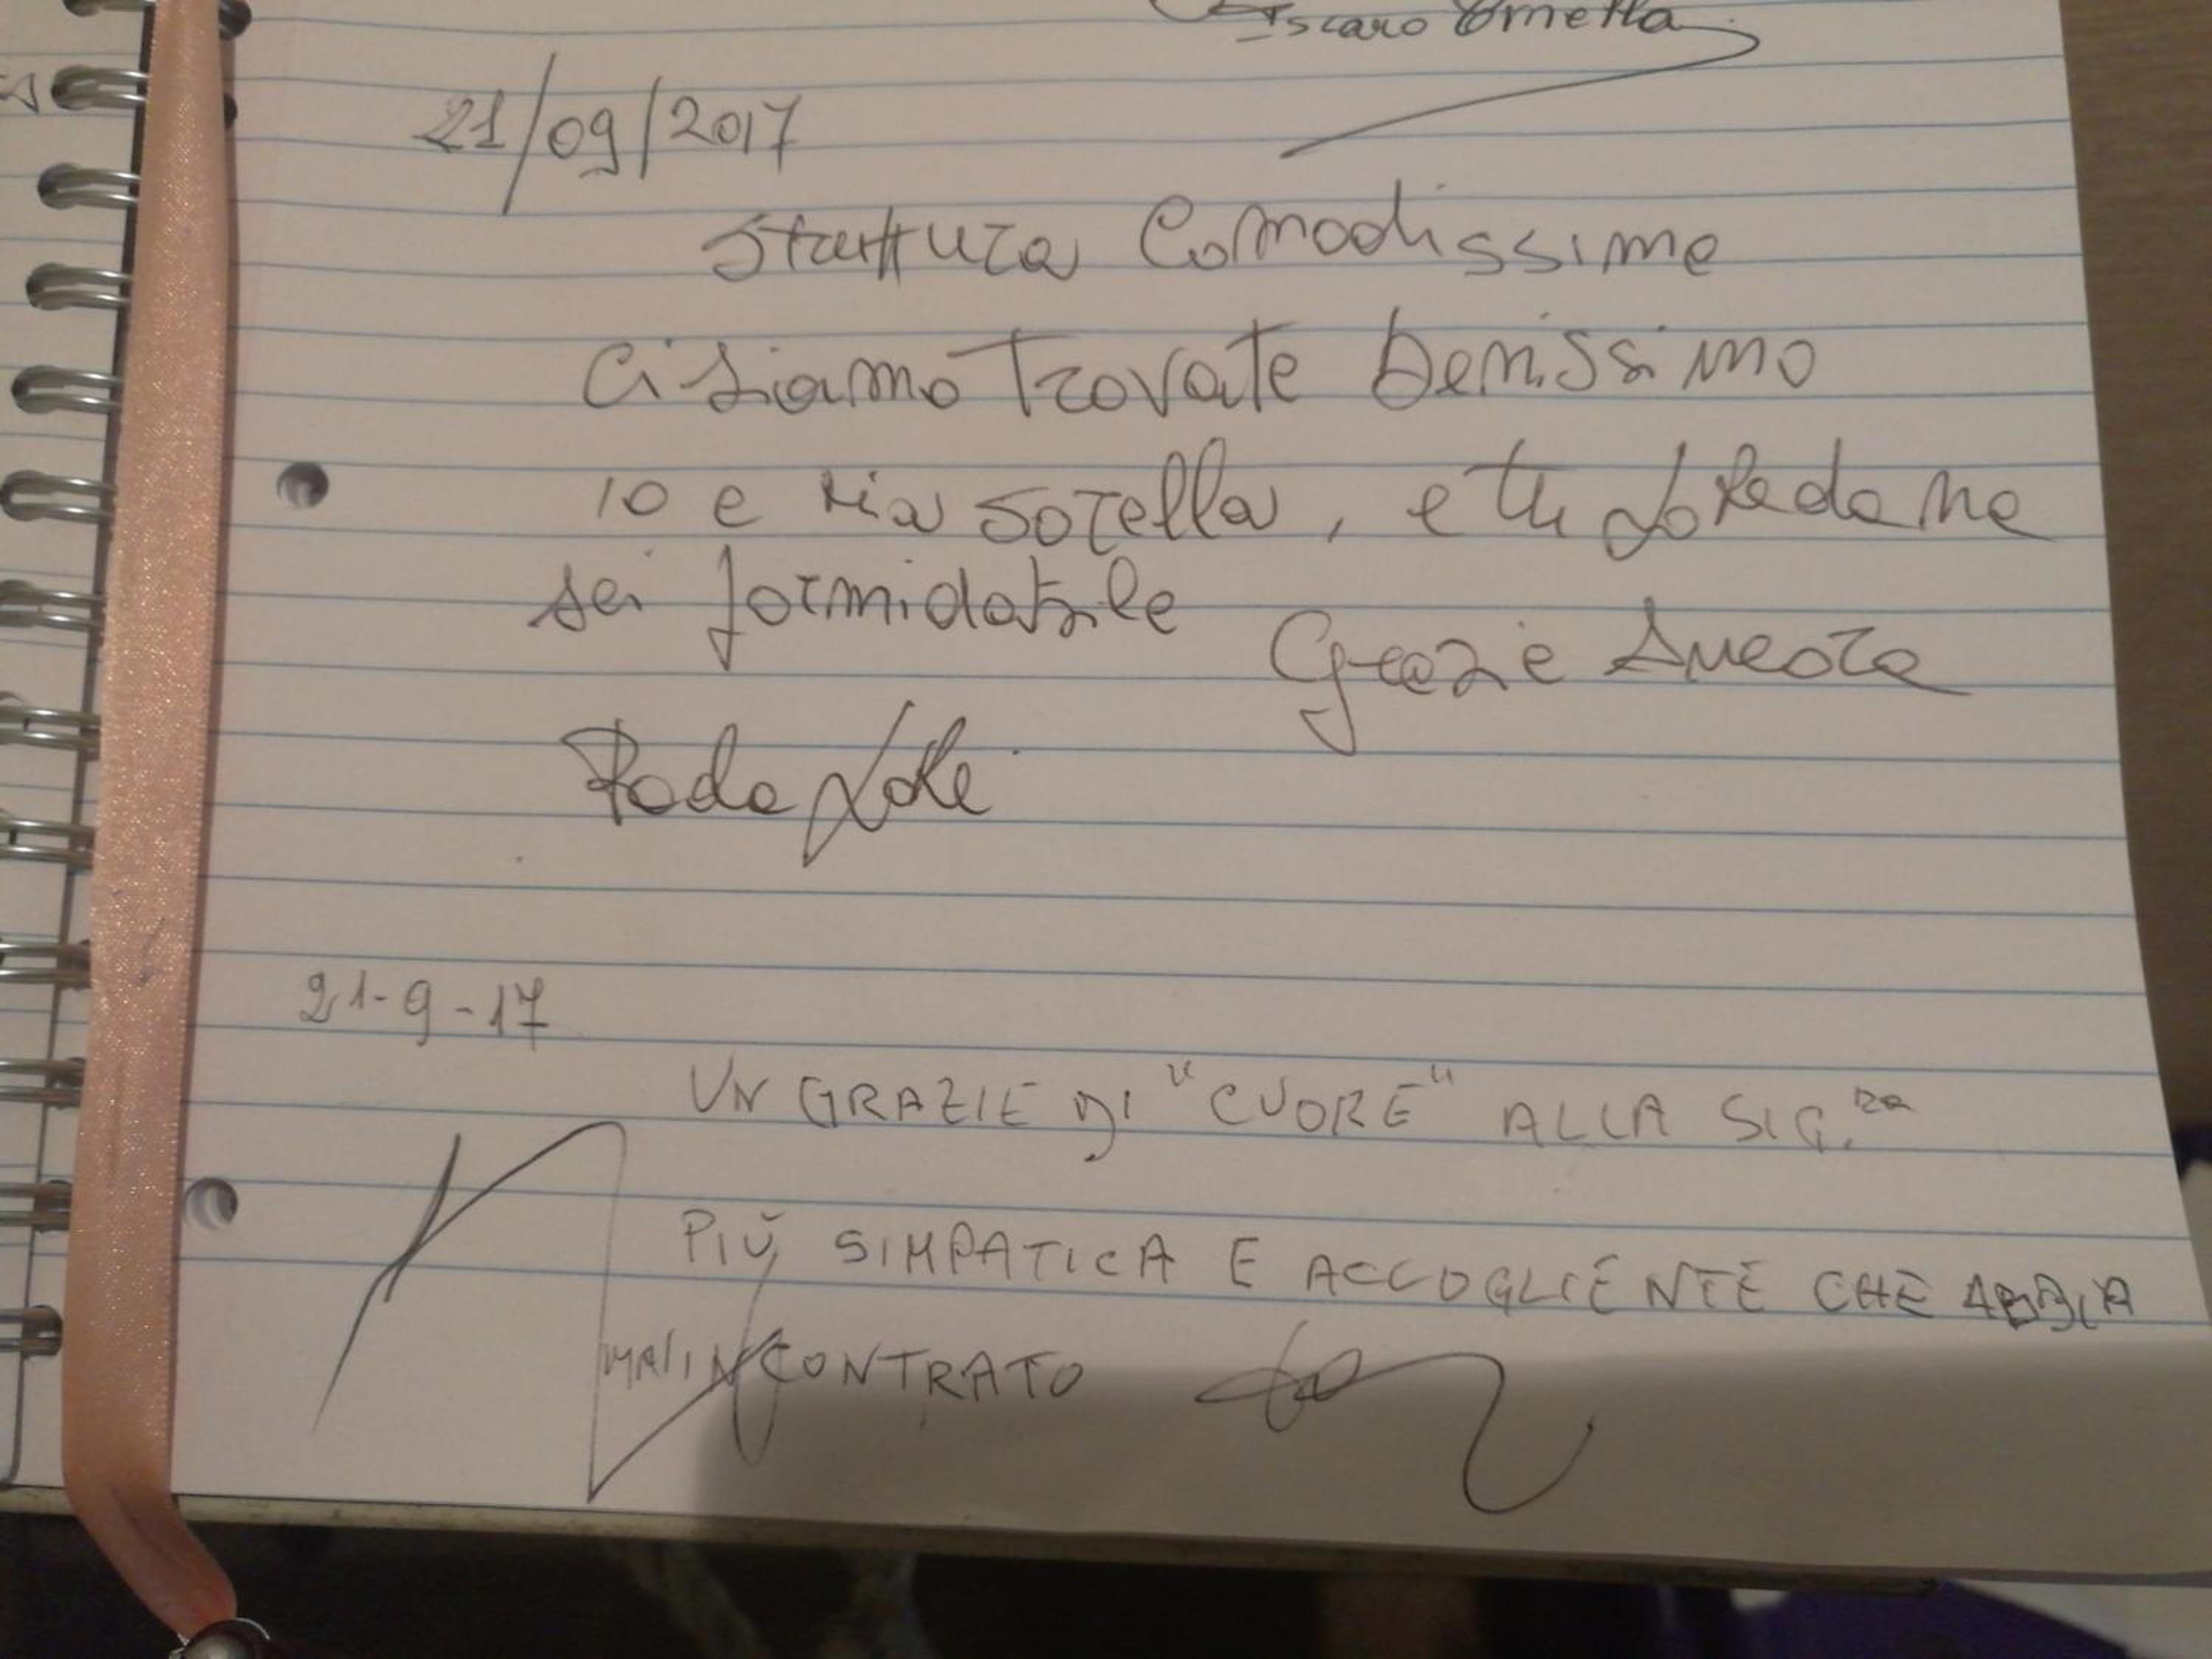 Iscaro Ornella
21/09/2017
Struttura Comodissima
Ci siamo trovate benissimo
io e mia sorella, e tu Loredana
sei formidabile
Grazie Ancora
21-9-17
UN GRAZIE DI "CUORE" ALLA SIG.ra
PIÙ SIMPATICA E ACCOGLIENTE CHE ABBIA
MAI INCONTRATO